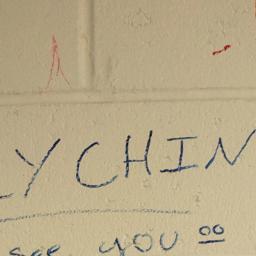 LYCHIN
see you oo